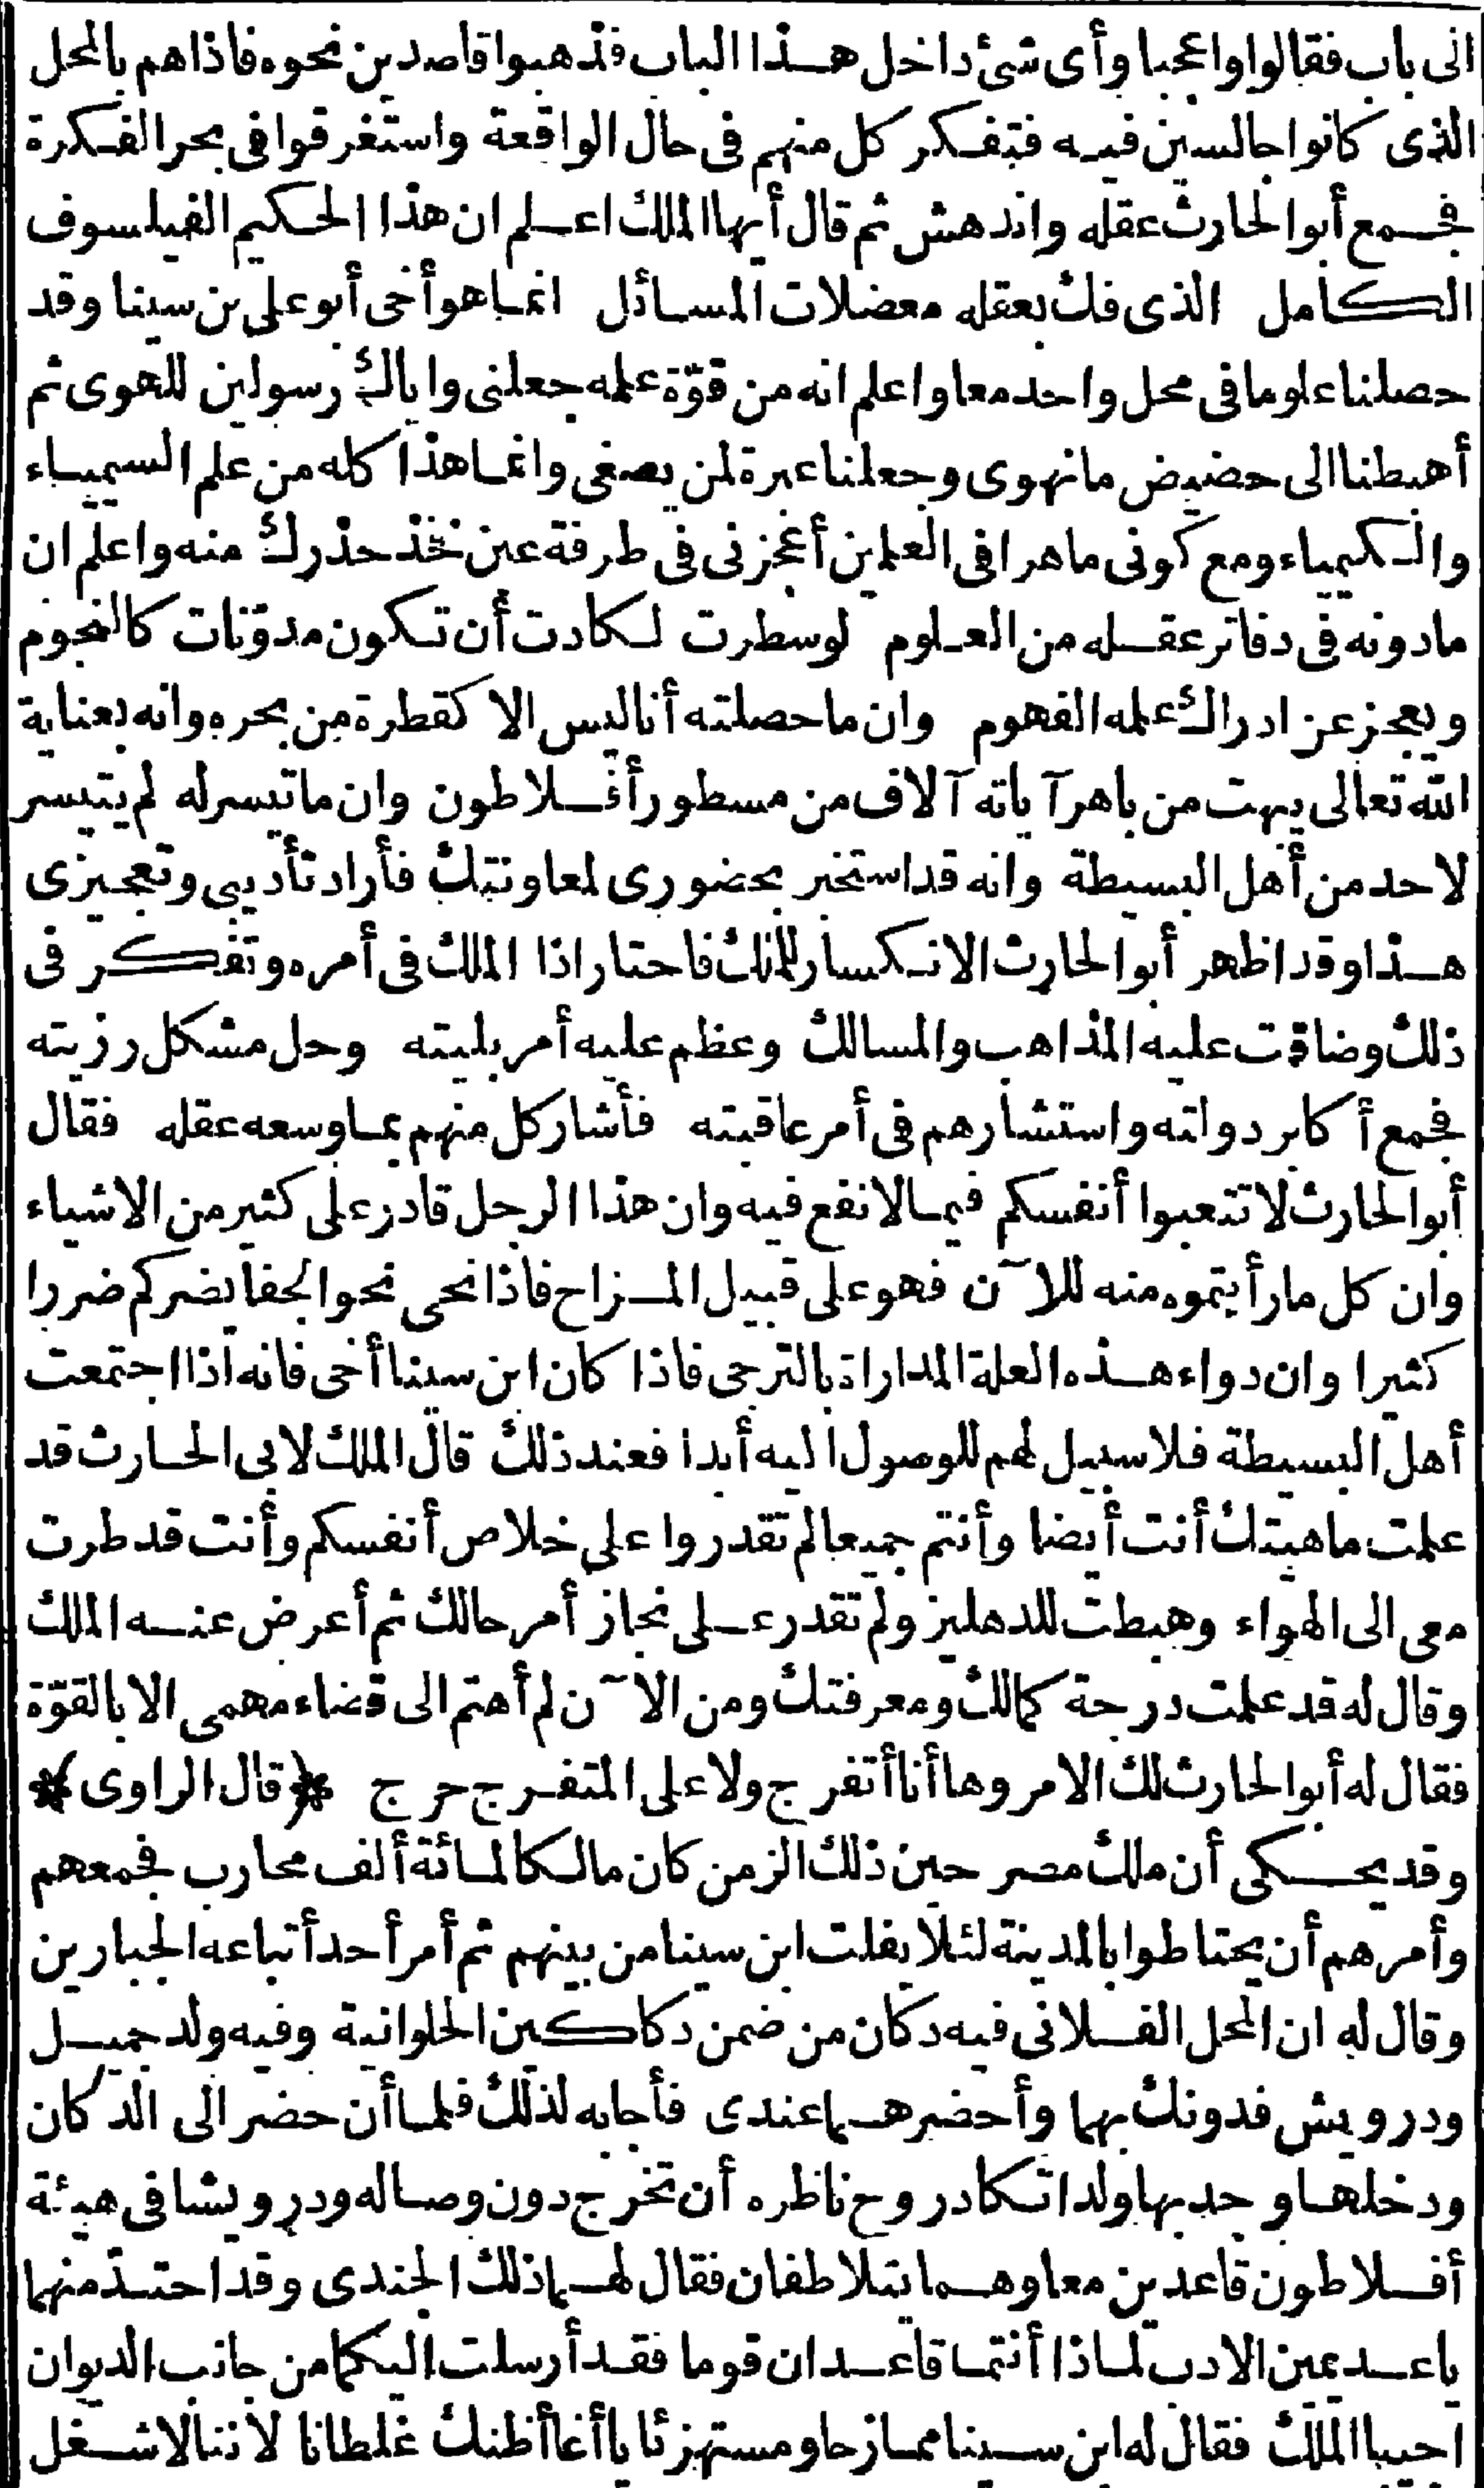 الى باب فقالوا واعجبا وأى شئ داخل هذا الباب فذهبوا قاصدين نحوه فاذا هم بالمحل
الذى كانوا جالسين فيه فتفكر كل منهم فى حال الواقعة واستغرقوا فى بحر الفكرة
فجمع أبو الحارث عقله واندهش ثم قال أيها الملك اعلم ان هذا الحكيم الفيلسوف
الكامل الذى فك بعقله معضلات المسائل انما هو أخى أبو على بن سينا وقد
حصلنا علوما فى محل واحد معا واعلم انه من قوّة علمه جعلنى واياك رسولين للهوى ثم
أهبطنا الى حضيض ما نهوى وجعلنا عبرة لمن يصغى وانما هذا كله من علم السيمياء
والكيمياء ومع كونى ماهرا فى العلمين أعجزنى فى طرفة عين نخذ حذرك منه واعلم ان
ما دونه فى دفاتر عقله من العلوم لو سطرت لكادت أن تكون مدوّنات كالنجوم
ويعجز عن ادراك علمه الفهوم وان ما حصلته أنا ليس الا كقطرة من بحره وانه بعناية
الله تعالى يبهت من باهر آياته آلاف من مسطور أفلاطون وان ما تيسر له لم يتيسر
لاحد من أهل البسيطة وانه قد استخبر بحضورى لمعاونتك فأراد تأديبى وتعجيزى
هذا وقد اظهر أبو الحارث الانكسار للملك فاحتار اذا الملك فى أمره وتفكر فى
ذلك وضاقت عليه المذاهب والمسالك وعظم عليه أمر بليته وحل مشكل رزيته
فجمع أكابر دولته واستشارهم فى أمر عاقبته فأشار كل منهم بما وسعه عقله فقال
أبو الحارث لا تتعبوا أنفسكم فيما لا نفع فيه وان هذا الرجل قادر على كثير من الاشياء
وان كل ما رأيتموه منه للآن فهو على قبيل المزاح فاذا نحى نحو الجفا يضركم ضررا
كثيرا وان دواء هذه العلة المداراة بالترجى فاذا كان ابن سينا أخى فانه اذا اجتمعت
أهل البسيطة فلا سبيل لهم للوصول اليه أبدا فعند ذلك قال الملك لابى الحارث قد
علمت ماهيتك أنت أيضا وأنتم جميعا لم تقدروا على خلاص أنفسكم وأنت قد طرت
معى الى الهواء وهبطت للدهليز ولم تقدر على نجاز أمر حالك ثم أعرض عنه الملك
وقال له قد علمت درجة كمالك ومعرفتك ومن الآن لم أهتم الى قضاء مهمى الا بالقوّة
فقال له أبو الحارث لك الامر وها أنا أتفرج ولا على المتفرج حرج ﴿قال الراوى﴾
وقد يحكى أن ملك مصر حين ذلك الزمن كان مالكا لمائة ألف محارب فجمعهم
وأمرهم أن يحتاطوا بالمدينة لئلا يفلت ابن سينا من بينهم ثم أمر أحد أتباعه الجبارين
وقال له ان المحل الفلانى فيه دكان من ضمن دكاكين الحلوانية وفيه ولد جميل
ودرويش فدونك بهما وأحضرهما عندى فأجابه لذلك فلما أن حضر الى الدكان
ودخلها وجد بها ولدا تكاد روح ناظره أن تخرج دون وصاله ودرويشا فى هيئة
أفلاطون قاعدين معا وهما يتلاطفان فقال لهما ذلك الجندى وقد احتدّ منهما
يا عديمين الادب لماذا أنتما قاعدان قوما فقد أرسلت اليكما من جانب الديوان
اجيبا الملك فقال له ابن سينا ممازحا ومستهزئا يا أغا أظنك غلطانا لاننا لا شغل